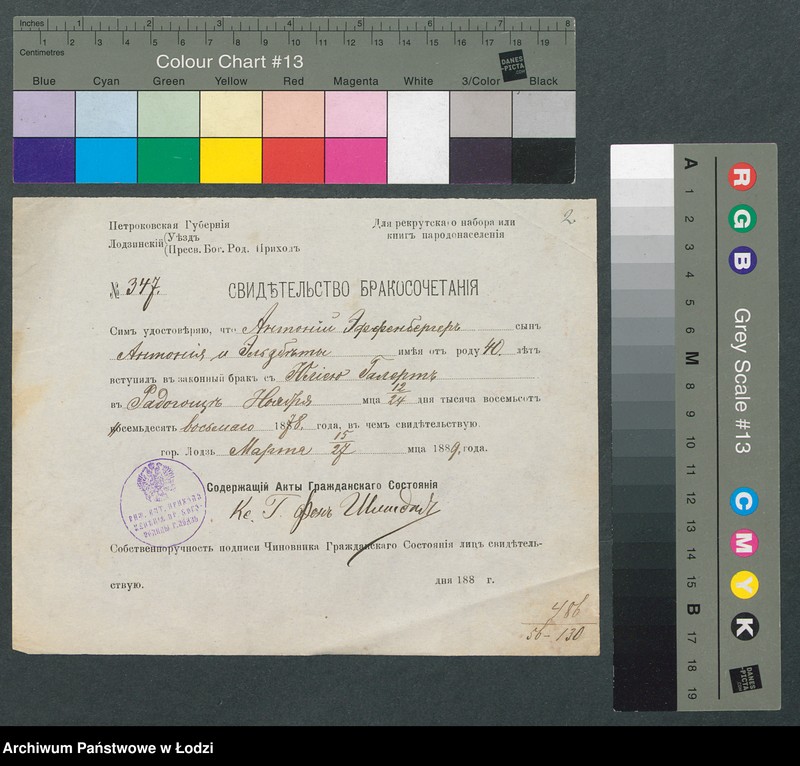 Inches 1 2 3 4 5 6 7 8
Centimetres 1 2 3 4 5 6 7 8 9 10 11 12 13 14 15 16 17 18 19
Colour Chart #13
DANES
-PICTA
.COM
Blue Cyan Green Yellow Red Magenta White 3/Color Black
Петроковская Губернія
Лодзинскій (Уѣздъ
(Пресв. Бог. Род. Приходъ
Для рекрутскаго набора или
книгъ народонаселенія
2
№ 347.
СВИДѢТЕЛЬСТВО БРАКОСОЧЕТАНІЯ
Симъ удостовѣряю, что Антоній Эффенбергеръ сынъ
Антонія и Эльзбѣты имѣя отъ роду 40. лѣтъ
вступилъ въ законный бракъ съ Юліею Галертъ
въ Радогощъ Ноября мца 12/24 дня тысяча восемьсотъ
восемьдесятъ восьмаго 1878. года, въ чемъ свидѣтельствую.
гор. Лодзь Марта 15/27 мца 1889. года.
Содержащій Акты Гражданскаго Состоянія
Кс. Г. фонъ Шмидтъ
РИМ. КАТ. ПРИХОД
Собственноручность подписи Чиновника Гражданскаго Состоянія лицъ свидѣтель-
ствую. дня 188 г.
486
56-130
A 1 2 3 4 5 6 M 8 9 10 11 12 13 14 15 B 17 18 19
R G B
Grey Scale #13
C M Y K
DANES
-PICTA
.COM
Archiwum Państwowe w Łodzi